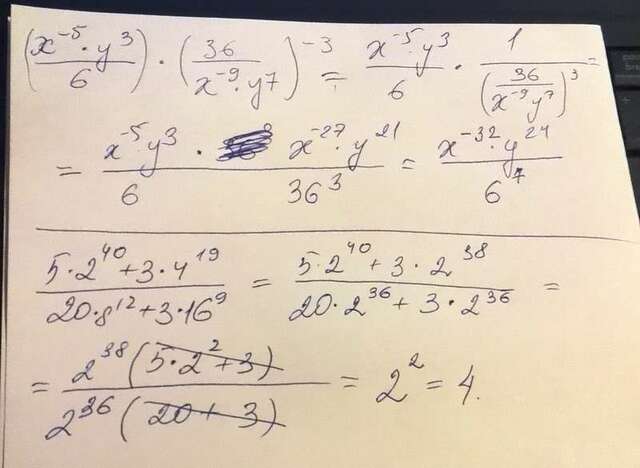 (x⁻⁵·y³/6)·(36/x⁻⁹·y⁷)⁻³ = x⁻⁵·y³/6 · 1/(36/x⁻⁹y⁷)³ =
= x⁻⁵·y³/6 · x⁻²⁷·y²¹/36³ = x⁻³²·y²⁴/6⁷
5·2⁴⁰+3·4¹⁹/20·8¹²+3·16⁹ = 5·2⁴⁰+3·2³⁸/20·2³⁶+3·2³⁶ =
= 2³⁸(5·2²+3)/2³⁶(20+3) = 2² = 4.